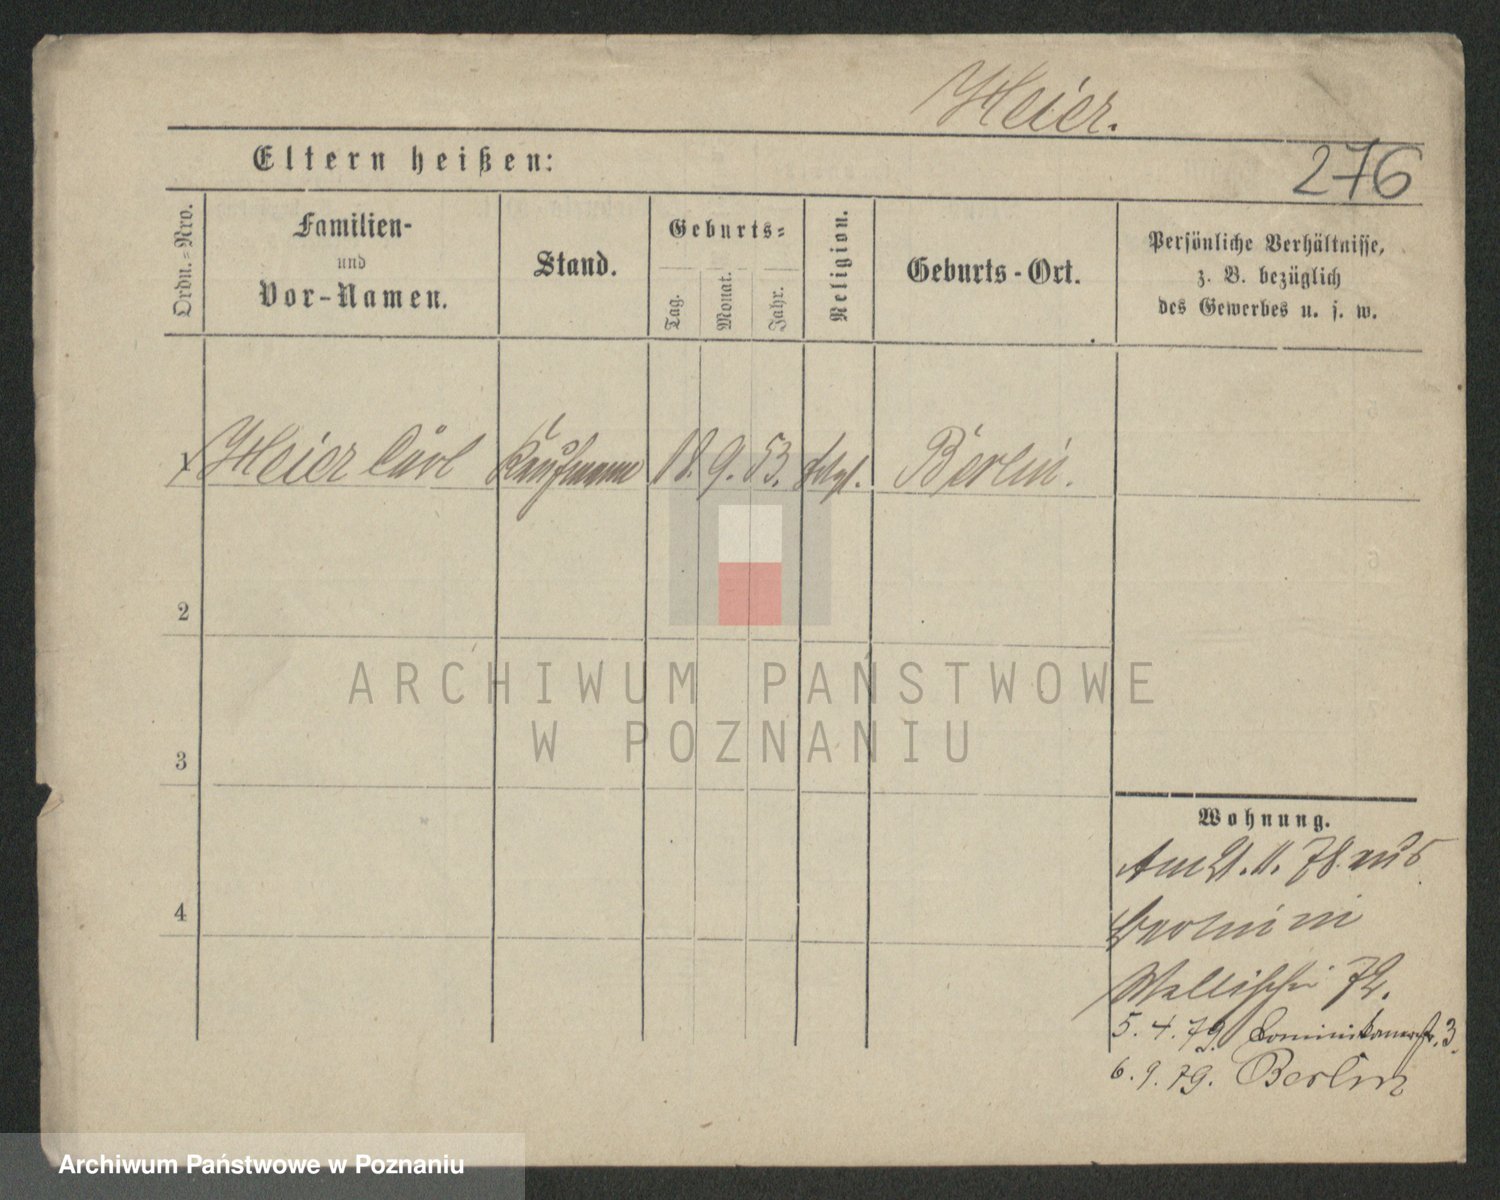 Meier.
276
Eltern heißen:
Ordn.=Nro.
Familien-
und
Vor-Namen.
Stand.
Geburts=
Tag.
Monat.
Jahr.
Religion.
Geburts-Ort.
Persönliche Verhältnisse,
z. B. bezüglich
des Gewerbes u. s. w.
1 Meier Carl Kaufmann 18. 9. 53. Berlin.
2
3
4
Wohnung.
Am 21. 11. 78. aus
Berlin in
Wallischei 72.
5. 4. 79. Dominikanerstr. 3.
6. 9. 79. Berlin
ARCHIWUM PAŃSTWOWE
W POZNANIU
Archiwum Państwowe w Poznaniu